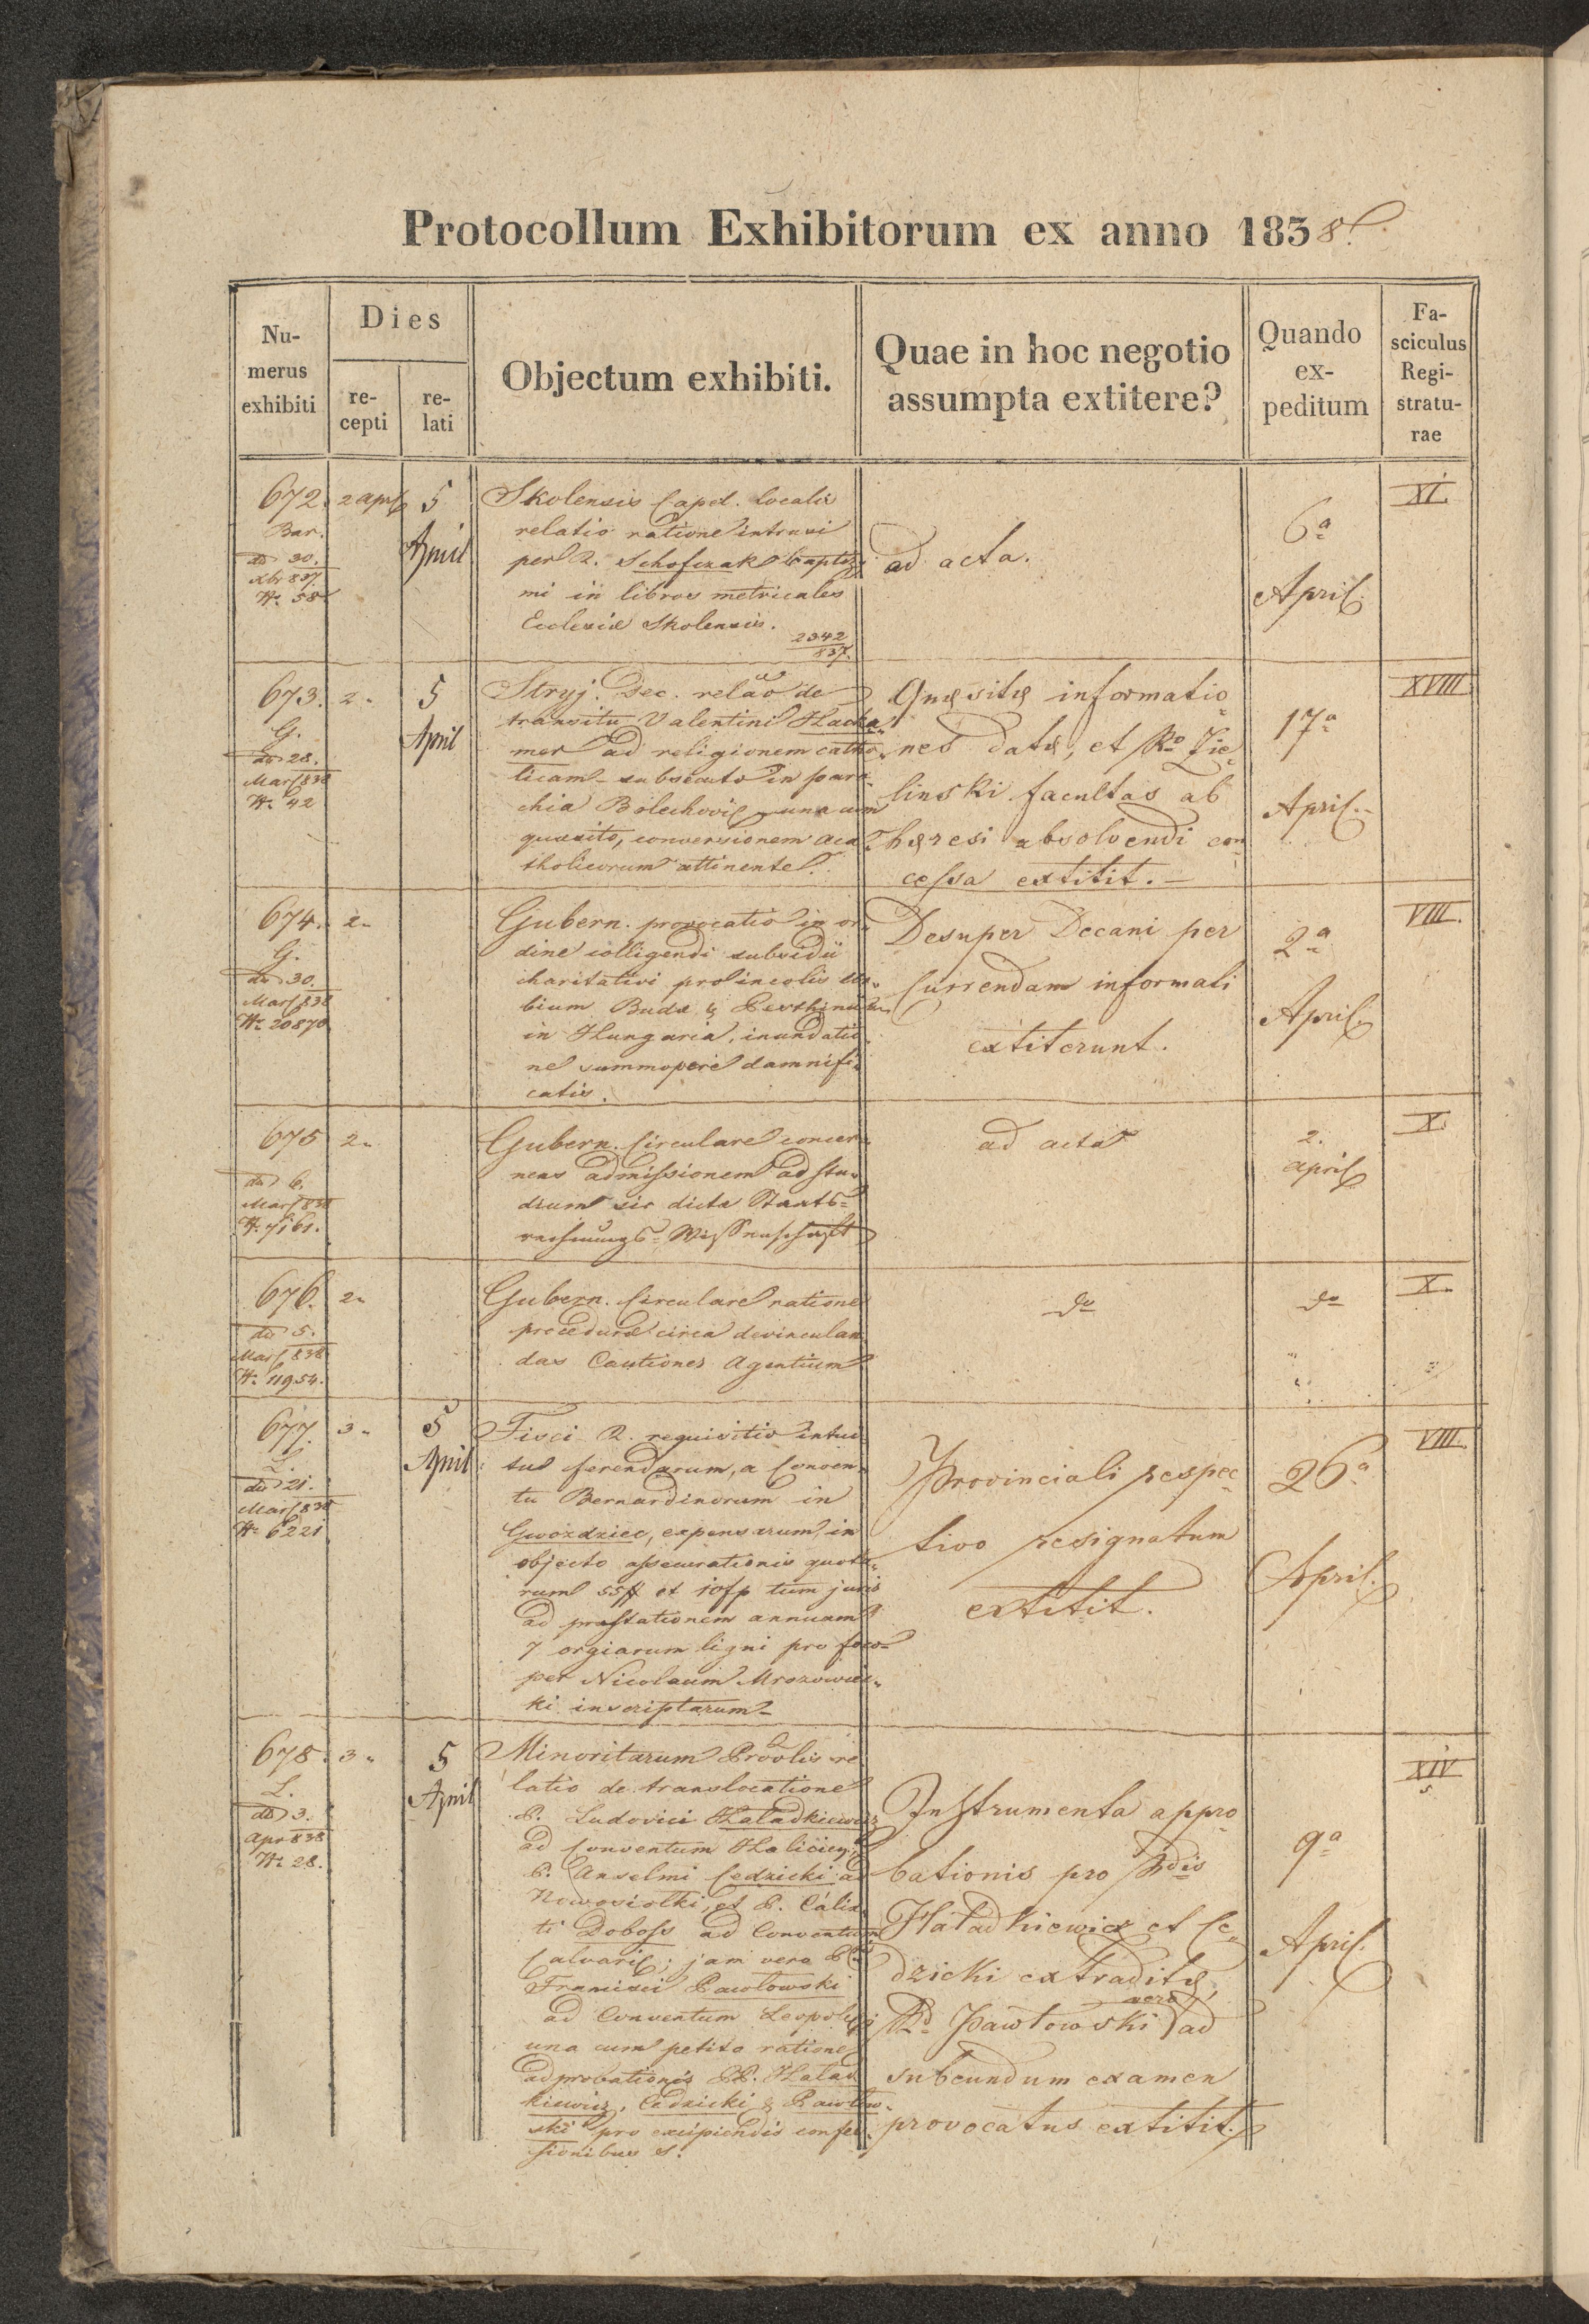 Protocollum Exhibitorum ex anno 1838.
Nu-
merus
exhibiti
Dies
re-
cepti
re-
lati
Objectum exhibiti.
Quae in hoc negotio
assumpta extitere?
Quando
ex-
peditum
Fa-
sciculus
Regi-
stratu-
rae
672.
Bar.
do 30.
Xbr 837.
N. 58
2 April
5
April
Skolensis Capel. localis
relatio ratione intrusi
per R. Schofczak baptis
mi in libros metricales
Ecclesiæ Skolensis.
2342
837.
ad acta.
6a
April.
XI.
673.
G.
do 28.
Mars 838
N. 42
2
5
April
Stryj. Dec. relão de
transitu Valentini Hacka
mer ad religionem catho
licam subsecuto in paro
chia Bolechovi una cum
quæsito, conversionem aca
tholicorum attinente.
Quæsitæ informatio
nes datæ, et Rdo Zie
linski facultas ab
hæresi absolvendi con
cessa extitit.
17a
April.
XVIII
674.
G.
do 30.
Mars 838
N. 20870
2
Gubern. provocatio in or
dine colligendi subsidii
charitativi pro incolis ur
bium Budæ & Pesthinensi
in Hungaria, inundatio
ne summopere damnifi
catis.
Desuper Decani per
Currendam informati
extiterunt.
2a
April.
VIII.
675
do 6.
Mars 838
N. 7161.
2
Gubern. Circulare concer
nens admissionem ad stu
dium sic dicta Staats-
rechnungs-Wissenschaft
ad acta
2.
april
X.
676.
do 5.
Mars 838
N. 11954.
2
Gubern. Circulare ratione
proceduræ circa devinculan
das Cautiones Agentium.
do
do
X.
677.
L.
do 21.
Mars 838
N. 6221
3
5
April
Fisci R. requisitio intui
tu ferendarum, a Conven
tu Bernardinorum in
Gwozdziec, expensarum, in
objecto assecurationis quota
rum 55 f et 10 fp tum juris
ad præstationem annuam
7 orgiarum ligni pro foco
per Nicolaum Mrozowic
ki inscriptarum
Provinciali respec
tivo resignatum
extitit.
26a
April.
VIII.
678.
L.
do 3.
Apr 838
N. 28.
3
5
April
Minoritarum Provolis re
latio de translocatione
P. Ludovici Hatadkiewicz
ad Conventum Halicien;
P. Anselmi Cedzicki ad
Nowosiolki, et P. Calix
ti Doboss ad Conventum
Calvariæ; jam vero P.
Francisci Pawlowski
ad Conventum Leopoli
una cum petito ratione
adprobationis PP. Hatad
kiewicz, Cedzicki & Pawlow
ski pro excipiendis confes
sionibus S.
Instrumenta appro
bationis pro Rdis
Hatadkiewicz et Ce
dzicki extraditæ,
Rd Pawlowski vero ad
subeundum examen
provocatus extitit.
9a
April.
XIV
5.